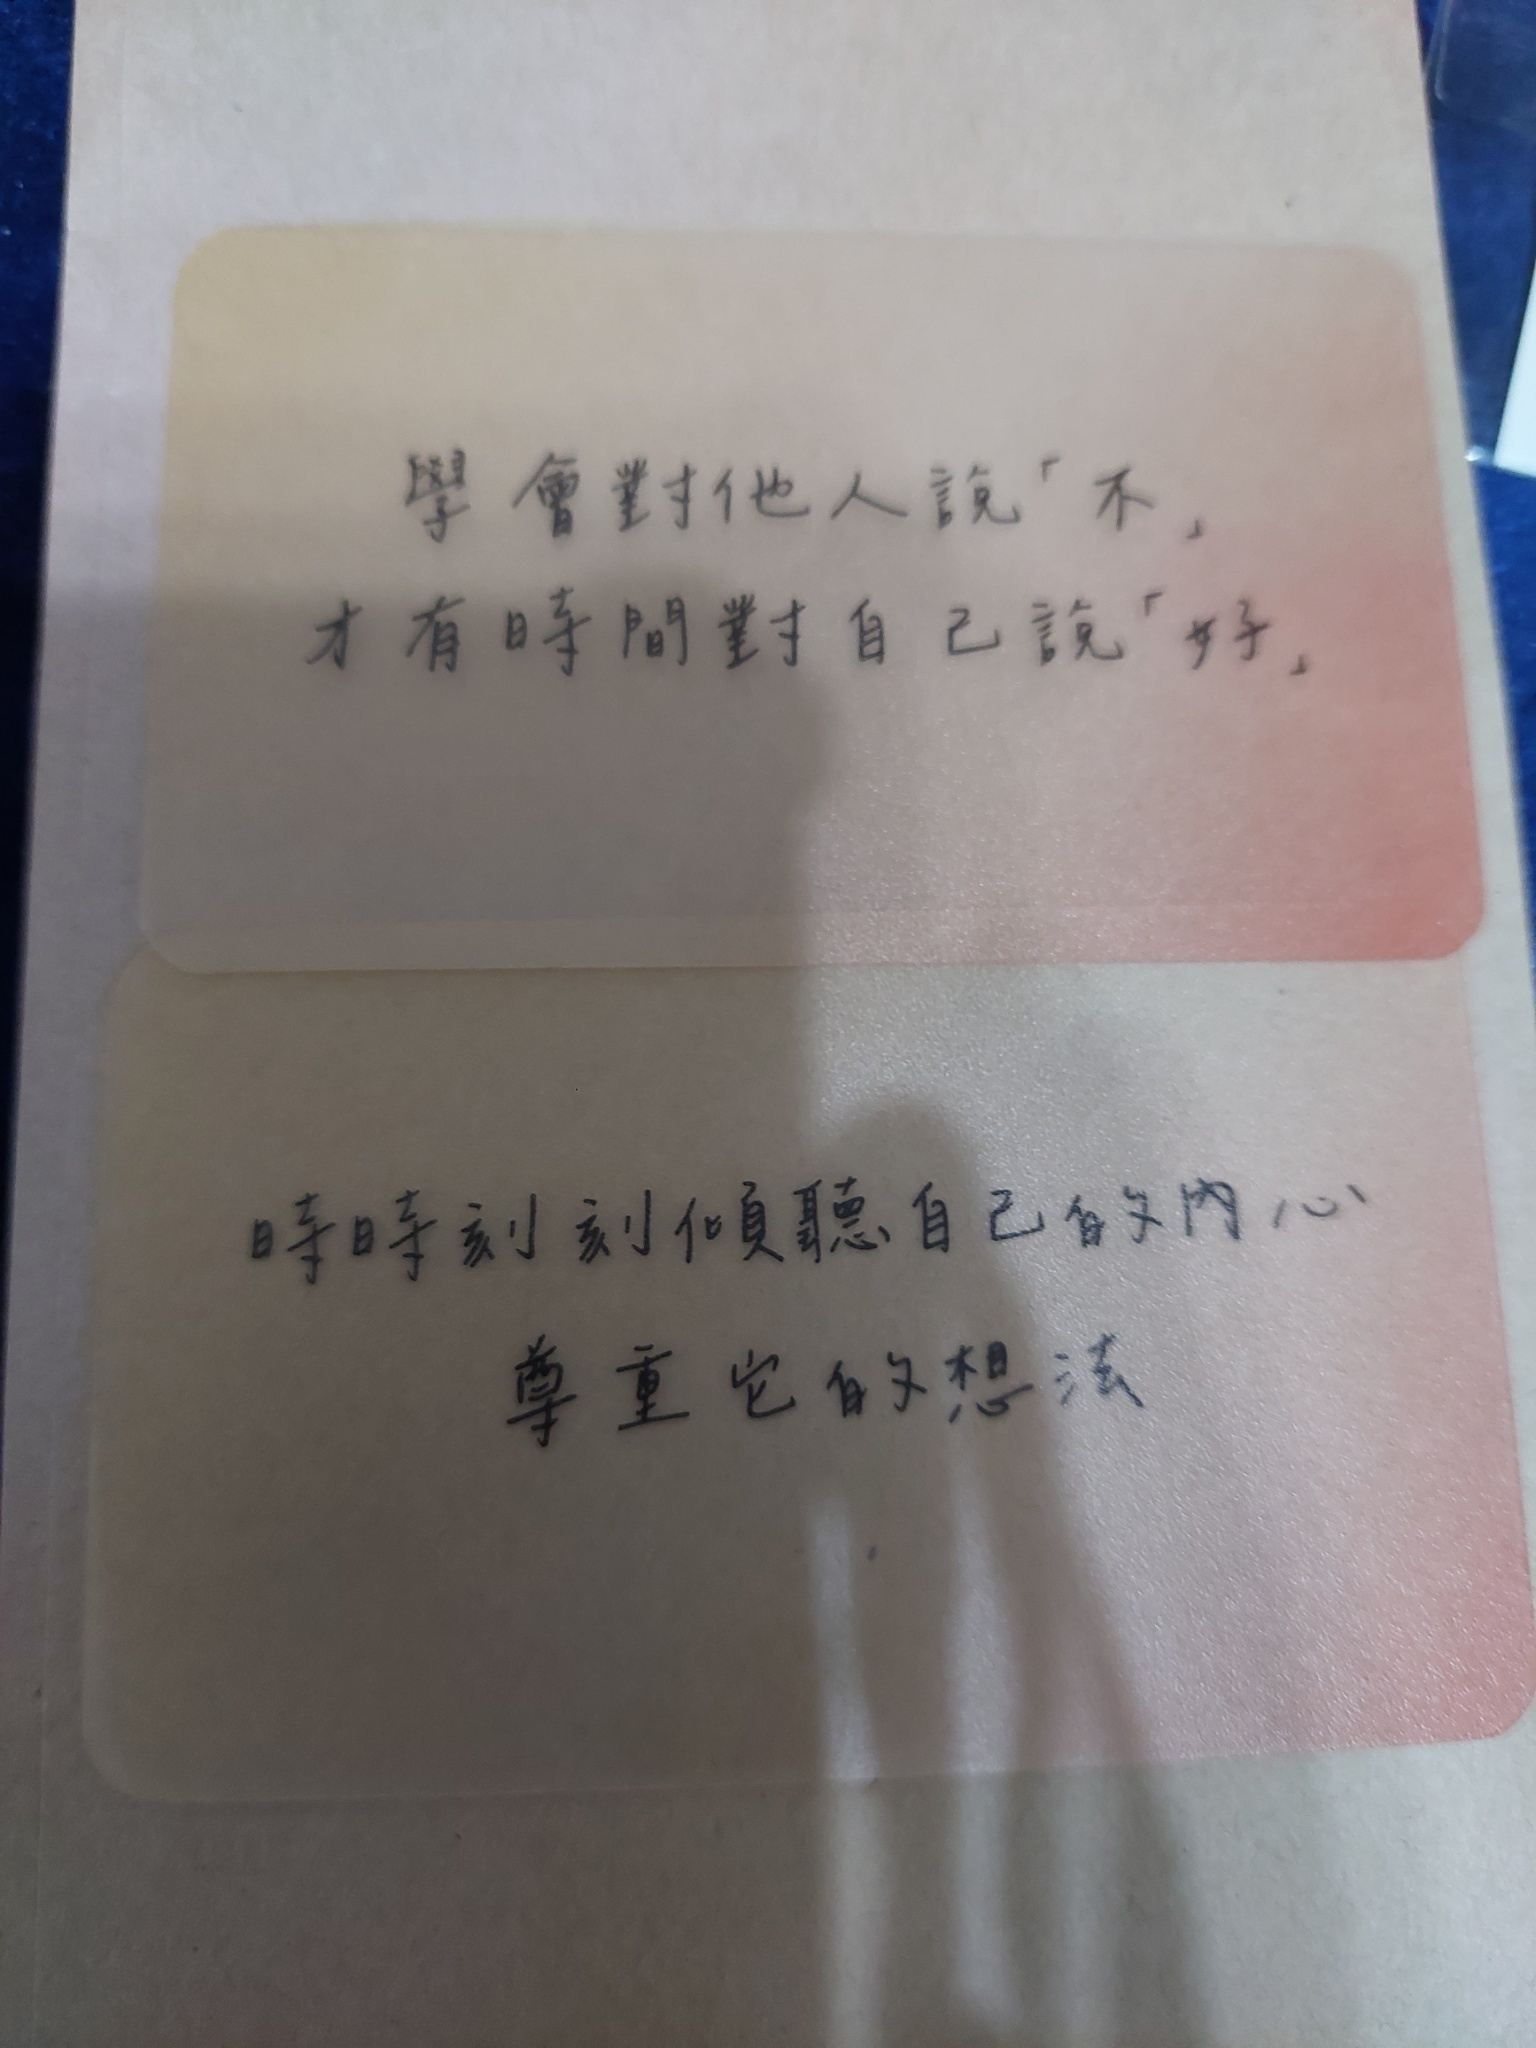 學會對他人說「不」
才有時間對自己說「好」
時時刻刻傾聽自己的內心
尊重它的想法